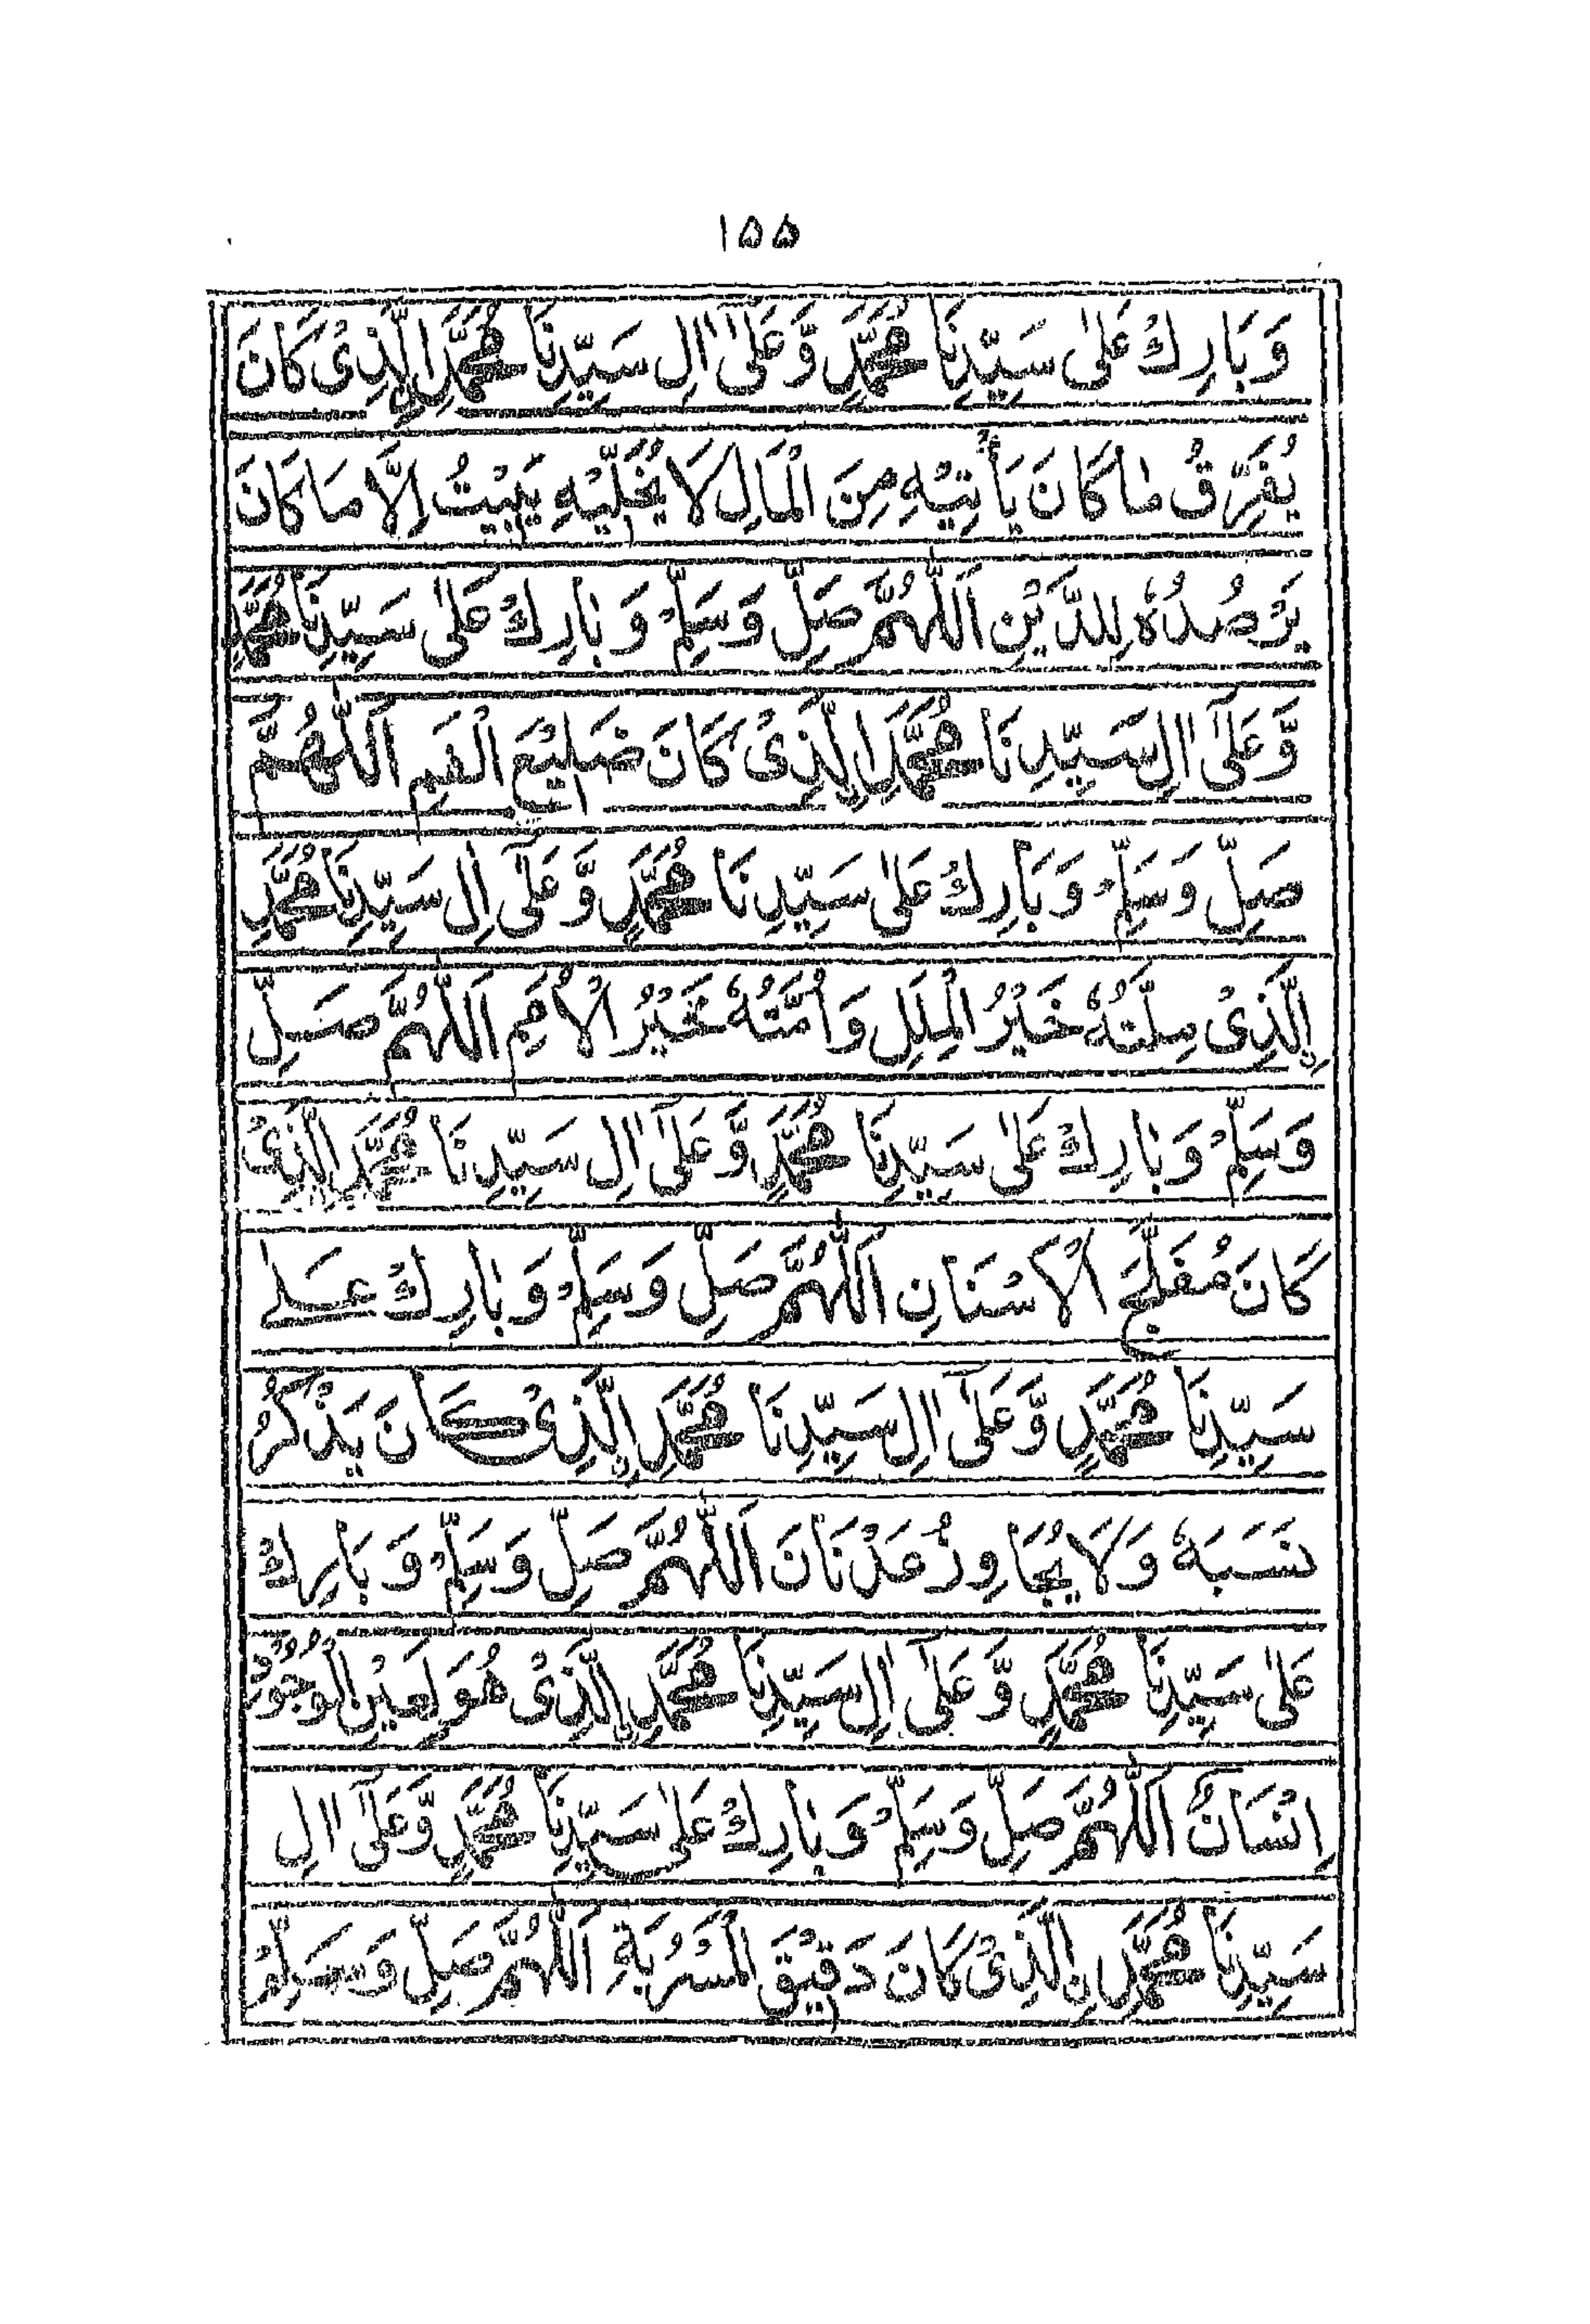 ۱۵۵
وَبَارِكْ عَلٰى سَيِّدِنَا مُحَمَّدٍ وَّعَلٰٓى اٰلِ سَيِّدِنَا مُحَمَّدِ ۨالَّذِىْ كَانَ
يُفَرِّقُ مَا كَانَ يَأْتِيْهِ مِنَ الْمَالِ لَا يُخَلِّيْهِ يَبِيْتُ اِلَّا مَا كَانَ
يَرْصُدُهٗ لِلدَّيْنِ اَللّٰهُمَّ صَلِّ وَسَلِّمْ وَبَارِكْ عَلٰى سَيِّدِنَا مُحَمَّدٍ
وَّعَلٰٓى اٰلِ سَيِّدِنَا مُحَمَّدِ ۨالَّذِىْ كَانَ ضَلِيْعَ الْفَمِ اَللّٰهُمَّ
صَلِّ وَسَلِّمْ وَبَارِكْ عَلٰى سَيِّدِنَا مُحَمَّدٍ وَّعَلٰٓى اٰلِ سَيِّدِنَا مُحَمَّدِ
ۨالَّذِىْ مِلَّتُهٗ خَيْرُ الْمِلَلِ وَاُمَّتُهٗ خَيْرُ الْاُمَمِ اَللّٰهُمَّ صَلِّ
وَسَلِّمْ وَبَارِكْ عَلٰى سَيِّدِنَا مُحَمَّدٍ وَّعَلٰٓى اٰلِ سَيِّدِنَا مُحَمَّدِ ۨالَّذِىْ
كَانَ مُفَلَّجَ الْاَسْنَانِ اَللّٰهُمَّ صَلِّ وَسَلِّمْ وَبَارِكْ عَلٰى
سَيِّدِنَا مُحَمَّدٍ وَّعَلٰٓى اٰلِ سَيِّدِنَا مُحَمَّدِ ۨالَّذِىْ كَانَ يَذْكُرُ
نَسَبَهٗ وَلَا يُجَاوِزُ عَدْنَانَ اَللّٰهُمَّ صَلِّ وَسَلِّمْ وَبَارِكْ
عَلٰى سَيِّدِنَا مُحَمَّدٍ وَّعَلٰٓى اٰلِ سَيِّدِنَا مُحَمَّدِ ۨالَّذِىْ هُوَ لِعَيْنِ الْوُجُوْدِ
اِنْسَانٌ اَللّٰهُمَّ صَلِّ وَسَلِّمْ وَبَارِكْ عَلٰى سَيِّدِنَا مُحَمَّدٍ وَّعَلٰٓى اٰلِ
سَيِّدِنَا مُحَمَّدِ ۨالَّذِىْ كَانَ دَقِيْقَ الْمَسْرُبَةِ اَللّٰهُمَّ صَلِّ وَسَلِّمْ